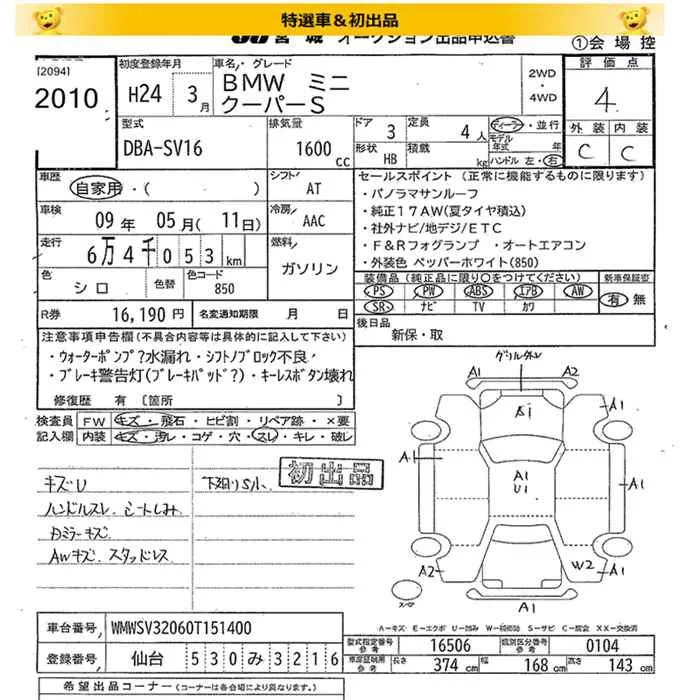 特選車＆初出品
JU 宮城 オークション出品申込書
①会場控
[2094]
2010
初度登録年月
H24 3月
車名・グレード
BMW ミニ
クーパーS
2WD
・
4WD
評価点
4
外装 内装
C C
型式
DBA-SV16
排気量
1600 cc
ドア 3
定員 4人
形状 HB
積載 kg
ディーラー・並行
モデル年式 年式
ハンドル 左・右
車歴
自家用・( )
シフト AT
車検
09年 05月(11日)
冷房 AAC
走行
6万4千053km
燃料
ガソリン
色 シロ
色替
色コード 850
R券 16,190円
名変通知期限 月 日
セールスポイント (正常に機能するものに限ります)
・パノラマサンルーフ
・純正17AW(夏タイヤ積込)
・社外ナビ/地デジ/ETC
・F&Rフォグランプ ・オートエアコン
・外装色 ペッパーホワイト(850)
装備品 (純正品に限り○をつけてください)
PS PW ABS エアB AW
SR ナビ TV カワ
新車保証書
有 無
後日品
新保・取
注意事項申告欄(不具合内容等は具体的に記入して下さい)
・ウォーターポンプ?水漏れ・シフトノブロック不良
・ブレーキ警告灯(ブレーキパッド?)・キーレスボタン壊れ
修復歴 有 [箇所 ]
検査員記入欄
FW キズ・飛石・ヒビ割・リペア跡・×要
内装 キズ・汚レ・コゲ・穴・スレ・キレ・破レ
初出品
キズU
下廻りS小
ハンドルスレ シートしみ
Dミラーキズ
AWキズ スタッドレス
グリル外レ
A1 A2
A1
A1
A1 A1
A1
U1 A1
A2 W2 A1
A1
スペア
A−キズ E−エクボ U−凹み W−補修跡 S−サビ C−腐食 XX−交換済
車台番号 WMWSV32060T151400
登録番号 仙台 530み3216
型式指定番号参考 16506
類別区分番号参考 0104
車庫証明用参考 長さ 374cm 幅 168cm 高さ 143
希望出品コーナー(コーナーは各会場により異なります。)